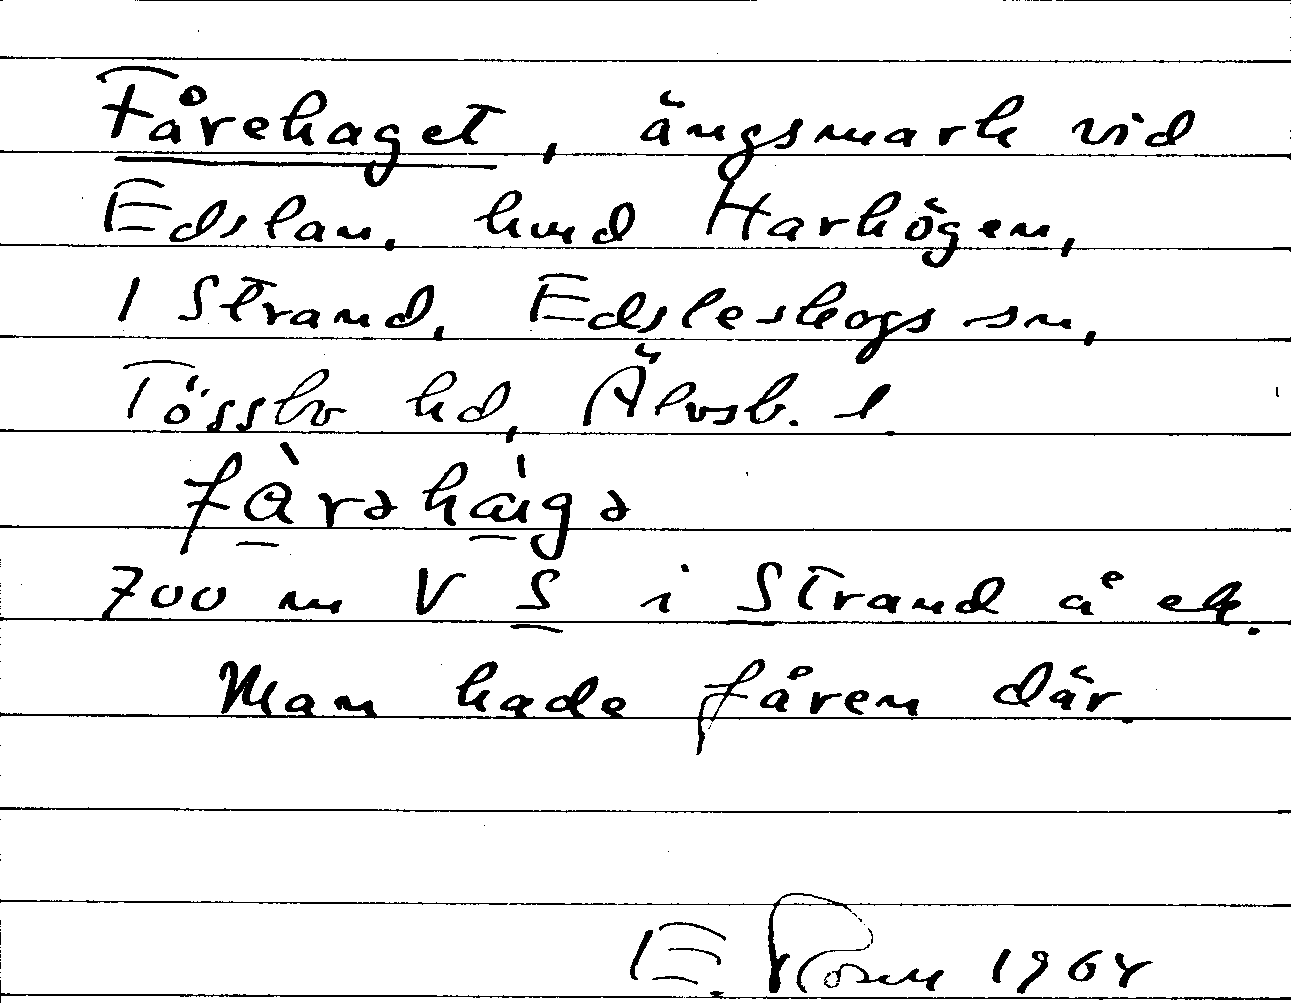 Fårehaget, ängsmark vid
Edslan, hmd Harhögen,
1 Strand, Edsleskogs sn,
Tössbo hd, Älvsb. l.
fàrəháigə
700 m V S i Strand å ek.
Man hade fåren där.
E. Rosén 1964